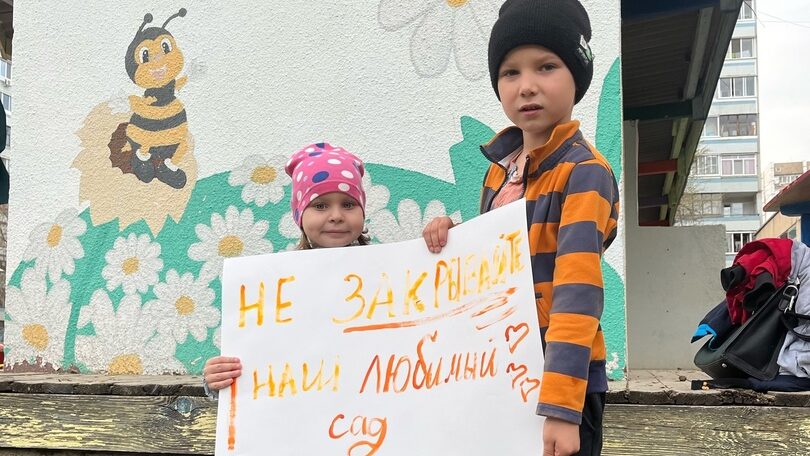 НЕ ЗАКРЫВАЙТЕ
НАШ ЛЮБИМЫЙ
сад